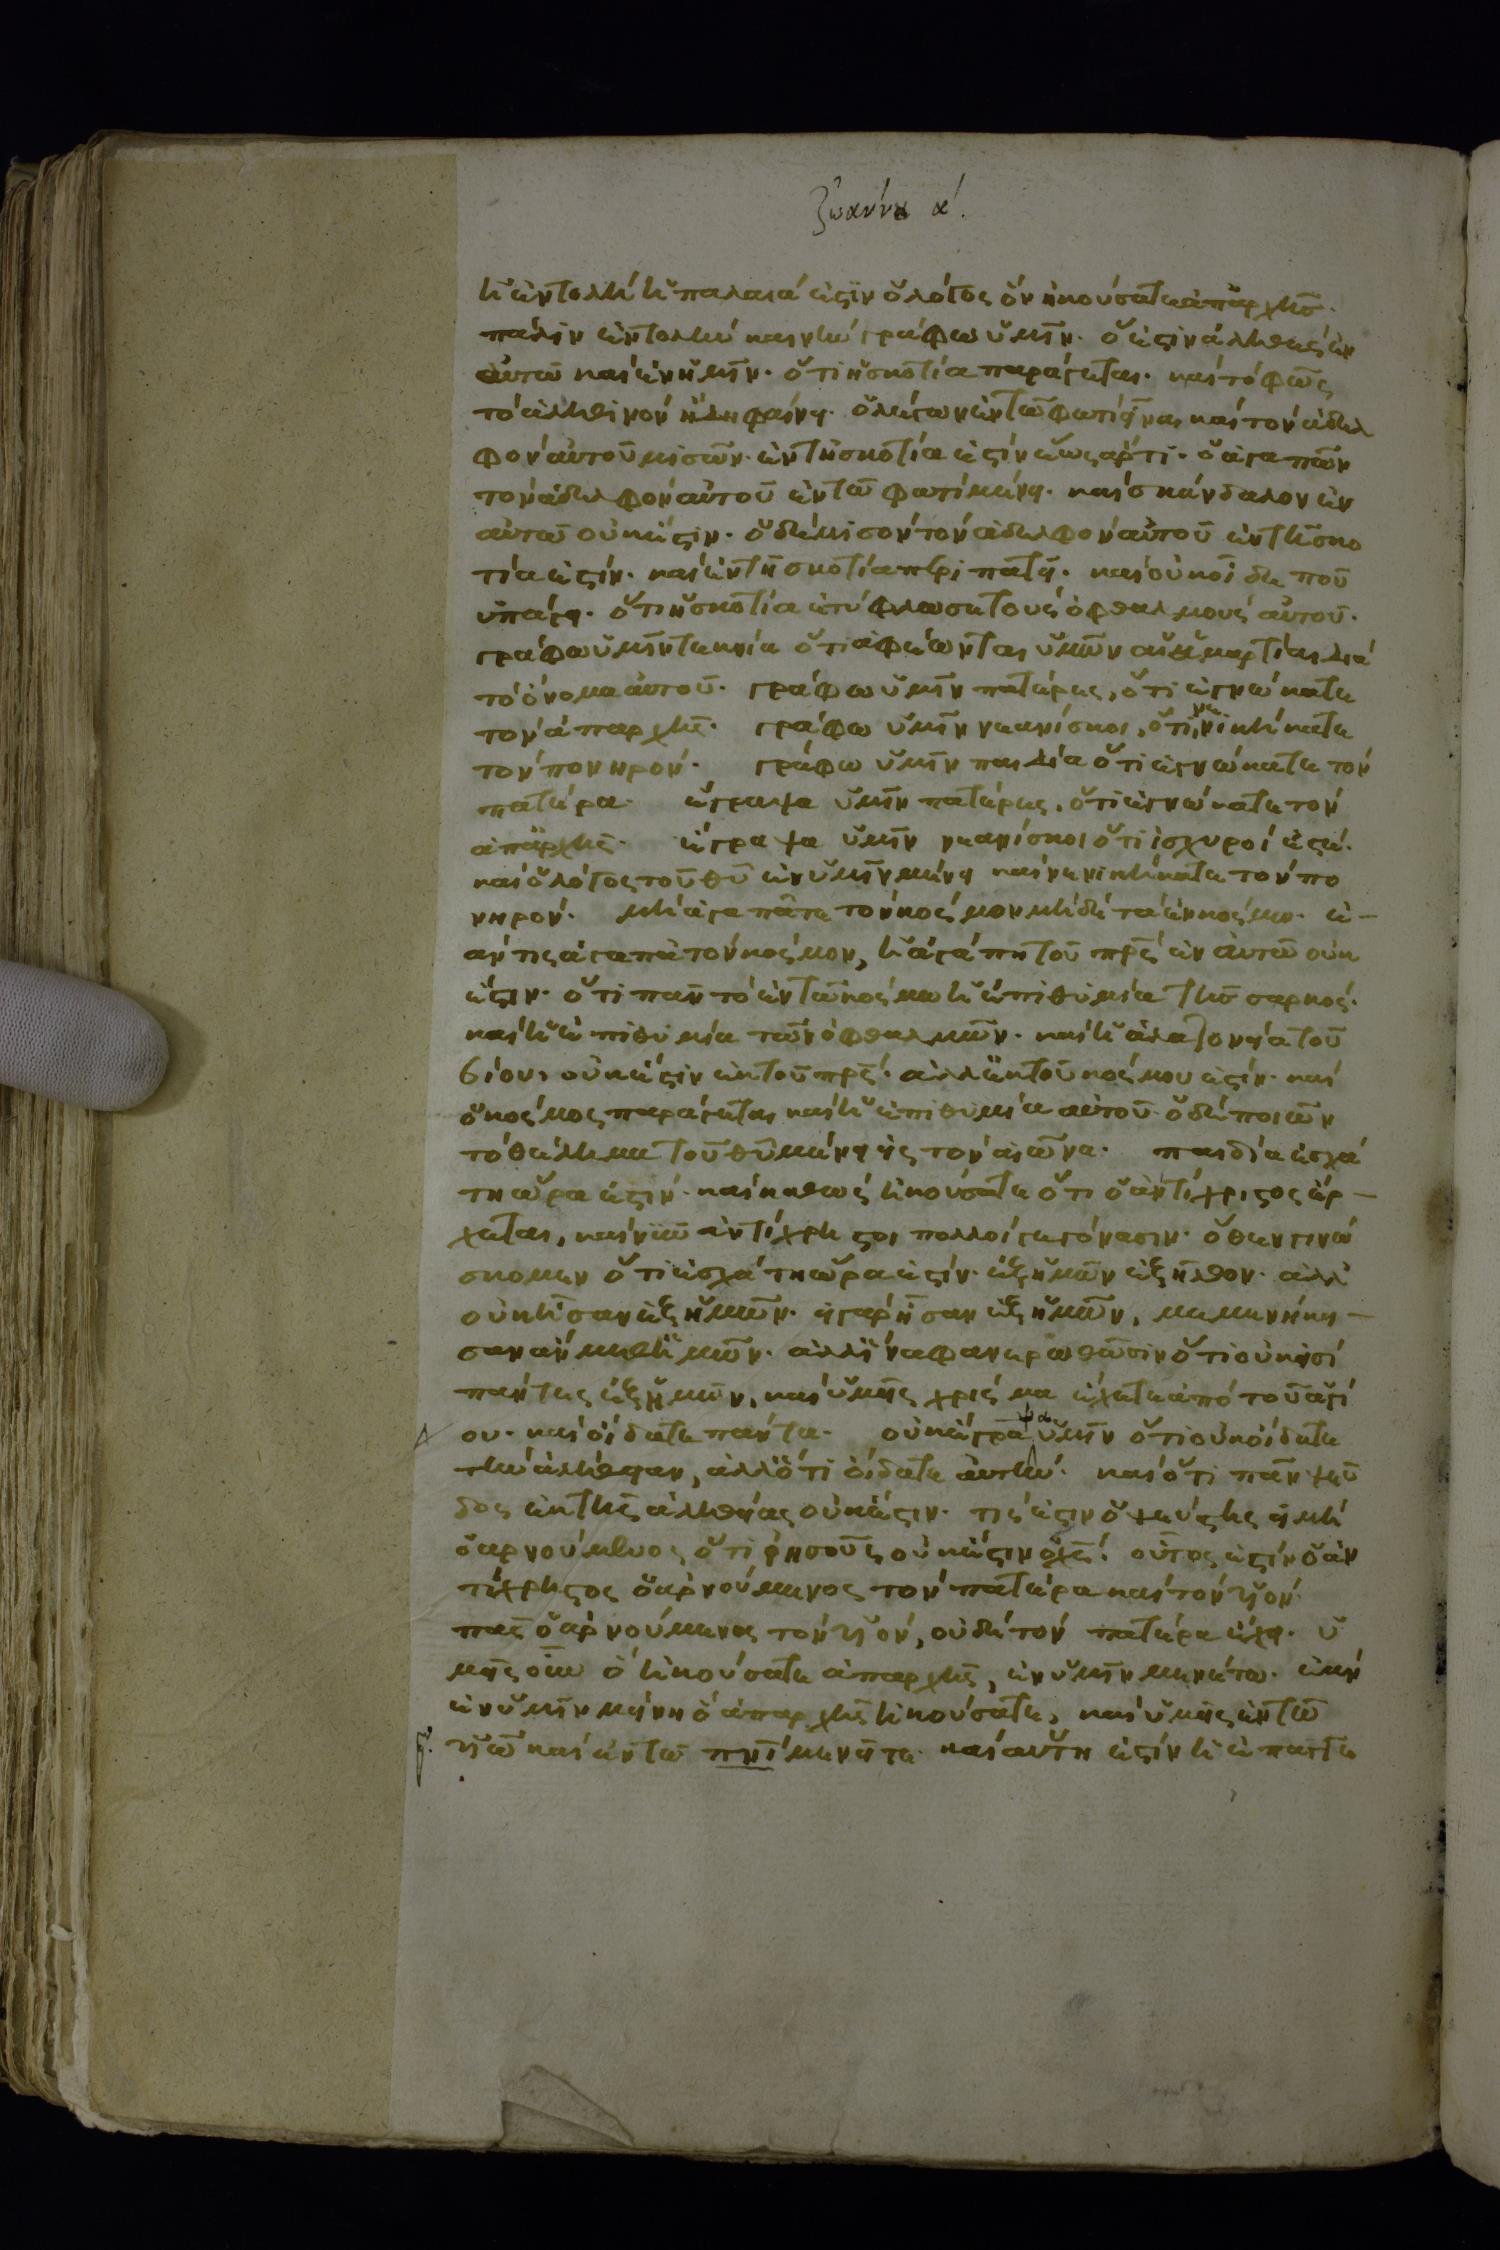 Ἰωάννου α΄.
ἡ ἐντολὴ ἡ παλαιά ἐστιν ὁ λόγος ὃν ἠκούσατε ἀπαρχῆς.
πάλιν ἐντολὴν καινὴν γράφω ὑμῖν. ὅ ἐστιν ἀληθὲς ἐν
αὐτῶ καὶ ἐν ἡμῖν. ὅτι ἡ σκοτία παράγεται. καὶ τὸ φῶς
τὸ ἀληθινὸν ἤδη φαίνει. ὁ λέγων ἐν τῶ φωτὶ εἶναι καὶ τὸν ἀδελ
φὸν αὐτοῦ μισῶν. ἐν τῆ σκοτία ἐστὶν ἕως ἄρτι. ὁ ἀγαπῶν
τὸν ἀδελφὸν αὐτοῦ ἐν τῶ φωτὶ μένει. καὶ σκάνδαλον ἐν
αὐτῶ οὐκ ἔστιν. ὁ δὲ μισὸν τὸν ἀδελφὸν αὐτοῦ ἐν τῆ σκο
τία ἐστίν. καὶ ἐν τῆ σκοτία περιπατεῖ. καὶ οὐκ οἶδε ποῦ
ὑπάγει. ὅτι ἡ σκοτία ἐτύφλωσε τοὺς ὀφθαλμοὺς αὐτοῦ.
γράφω ὑμῖν τεκνία ὅτι ἀφέωνται ὑμῶν αἱ ἁμαρτίαι διὰ
τὸ ὄνομα αὐτοῦ. γράφω ὑμῖν πατέρες, ὅτι ἐγνώκατε
τὸν ἀπαρχῆς. γράφω ὑμῖν νεανίσκοι, ὅτι νενικήκατε
τὸν πονηρόν. γράφω ὑμῖν παιδία ὅτι ἐγνώκατε τὸν
πατέρα. ἔγραψα ὑμῖν πατέρες, ὅτι ἐγνώκατε τὸν
ἀπαρχῆς. ἔγραψα ὑμῖν νεανίσκοι ὅτι ἰσχυροί ἐστέ.
καὶ ὁ λόγος τοῦ θῦ ἐν ὑμῖν μένει καὶ νενικήκατε τὸν πο
νηρόν. μὴ ἀγαπᾶτε τὸν κόσμον μηδὲ τὰ ἐν κόσμω. ἐ-
άν τις ἀγαπᾶ τὸν κόσμον, ἡ ἀγάπη τοῦ πρς ἐν αὐτῶ οὐκ
ἔστιν. ὅτι πᾶν τὸ ἐν τῶ κόσμω ἡ ἐπιθυμία τῆς σαρκός.
καὶ ἡ ἐπιθυμία τῶν ὀφθαλμῶν. καὶ ἡ ἀλαζονεία τοῦ
βίου, οὐκ ἔστιν ἐκ τοῦ πρς. ἀλλ ἐκ τοῦ κόσμου ἐστίν. καὶ
ὁ κόσμος παράγεται καὶ ἡ ἐπιθυμία αὐτοῦ. ὁ δὲ ποιῶν
τὸ θέλημα τοῦ θῦ μένει εἰς τὸν αἰῶνα. παιδία ἐσχά
τη ὥρα ἐστίν. καὶ καθὼς ἠκούσατε ὅτι ὁ ἀντίχριστος ἔρ-
χεται, καὶ νῦν ἀντίχρηστοι πολλοὶ γεγόνασιν. ὅθεν γινώ
σκομεν ὅτι ἐσχάτη ὥρα ἐστίν. ἐξ ἡμῶν ἐξῆλθον. ἀλλ
οὐκ ἦσαν ἐξ ἡμῶν. εἰ γὰρ ἦσαν ἐξ ἡμῶν, μεμενήκει-
σαν ἂν μεθ ἡμῶν. ἀλλ ἵνα φανερωθῶσιν ὅτι οὐκ εἰσὶ
πάντες ἐξ ἡμῶν, καὶ ὑμεῖς χρίσμα ἔχετε ἀπὸ τοῦ ἁγί
ου. καὶ οἴδατε πάντα. οὐκ ἔγραψα ὑμῖν ὅτι οὐκ οἴδατε
τὴν ἀλήθειαν, ἀλλ ὅτι οἴδατε αὐτήν. καὶ ὅτι πᾶν ψεῦ
δος ἐκ τῆς ἀληθείας οὐκ ἔστιν. τίς ἐστιν ὁ ψεύστης εἰ μὴ
ὁ ἀρνούμενος ὅτι ἰησοῦς οὐκ ἔστιν ὁ χς. οὗτος ἐστὶν ὁ ἀν
τίχρηστος ὁ ἀρνούμενος τὸν πατέρα καὶ τὸν υἱόν.
πᾶς ὁ ἀρνούμενος τὸν υἱόν, οὐδὲ τὸν πατέρα ἔχει. ὑ
μεῖς οὖν ὃ ἠκούσατε ἀπαρχῆς, ἐν ὑμῖν μενέτω. ἐὰν
ἐν ὑμῖν μείνη ὃ ἀπαρχῆς ἠκούσατε, καὶ ὑμεῖς ἐν τῶ
υἱῶ καὶ ἐν τῶ πνι μενεῖτε. καὶ αὕτη ἐστὶν ἡ ἐπαγγε